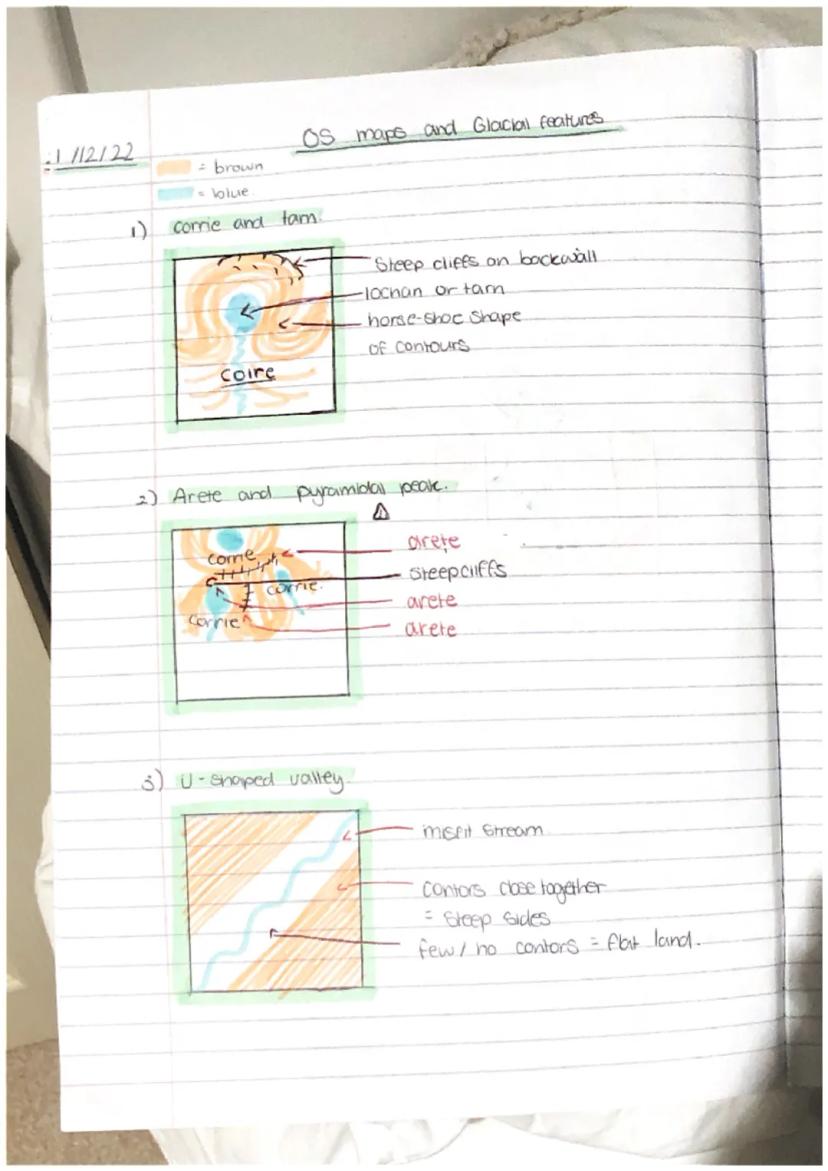 OS maps and Glacial features
1/12/22
= brown
= blue
1) corrie and tarn.
Steep cliffs on backwall
lochan or tarn
horse-shoe shape
of contours
coire
2) Arete and pyramidal peak.
arete
corrie
steepcliffs
corrie.
arete
corrie
arete
3) U-shaped valley.
misfit stream
contors close together
= steep sides
few/no contors = flat land.